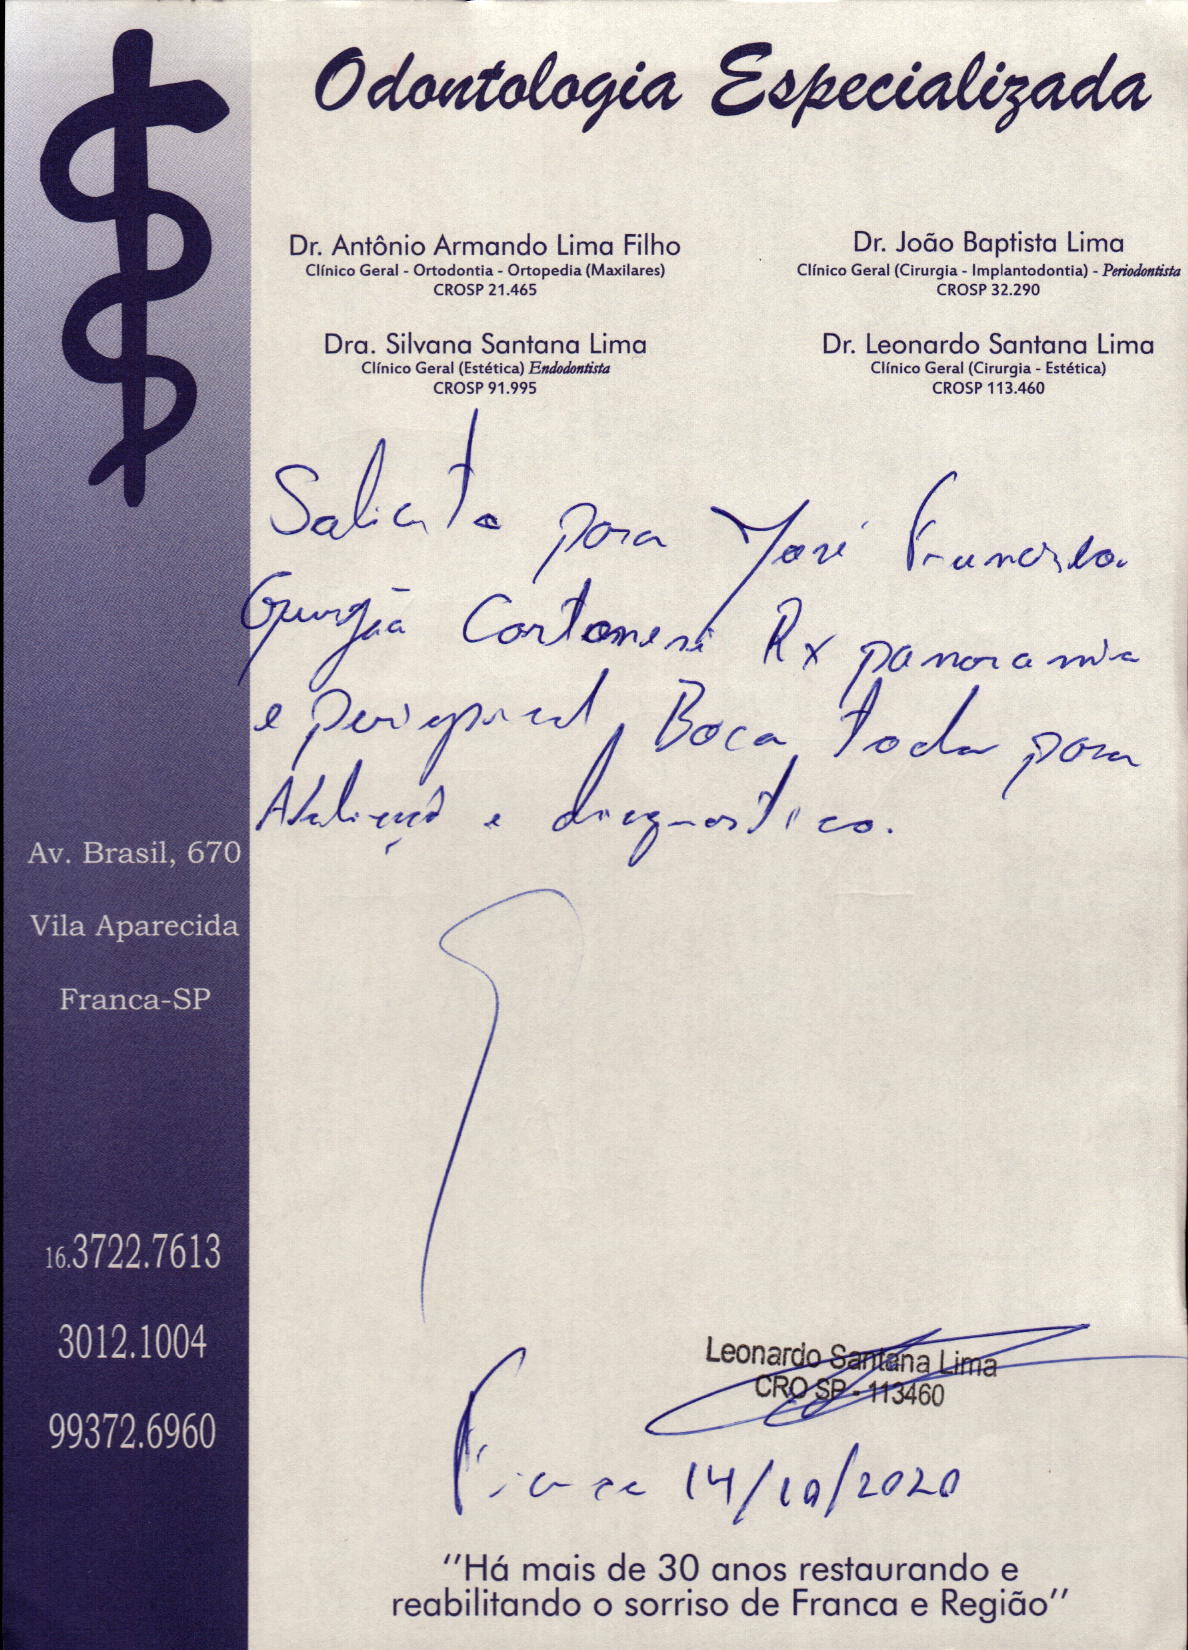 Odontologia Especializada
Dr. Antônio Armando Lima Filho
Clínico Geral - Ortodontia - Ortopedia (Maxilares)
CROSP 21.465
Dr. João Baptista Lima
Clínico Geral (Cirurgia - Implantodontia) - Periodontista
CROSP 32.290
Dra. Silvana Santana Lima
Clínico Geral (Estética) Endodontista
CROSP 91.995
Dr. Leonardo Santana Lima
Clínico Geral (Cirurgia - Estética)
CROSP 113.460
Solicito para José Francisco
Rx panoramica
e periapical Boca toda para
Avaliação e diagnostico.
Av. Brasil, 670
Vila Aparecida
Franca-SP
16.3722.7613
3012.1004
99372.6960
Leonardo Santana Lima
CRO SP - 113460
Franca 14/10/2020
"Há mais de 30 anos restaurando e
reabilitando o sorriso de Franca e Região"